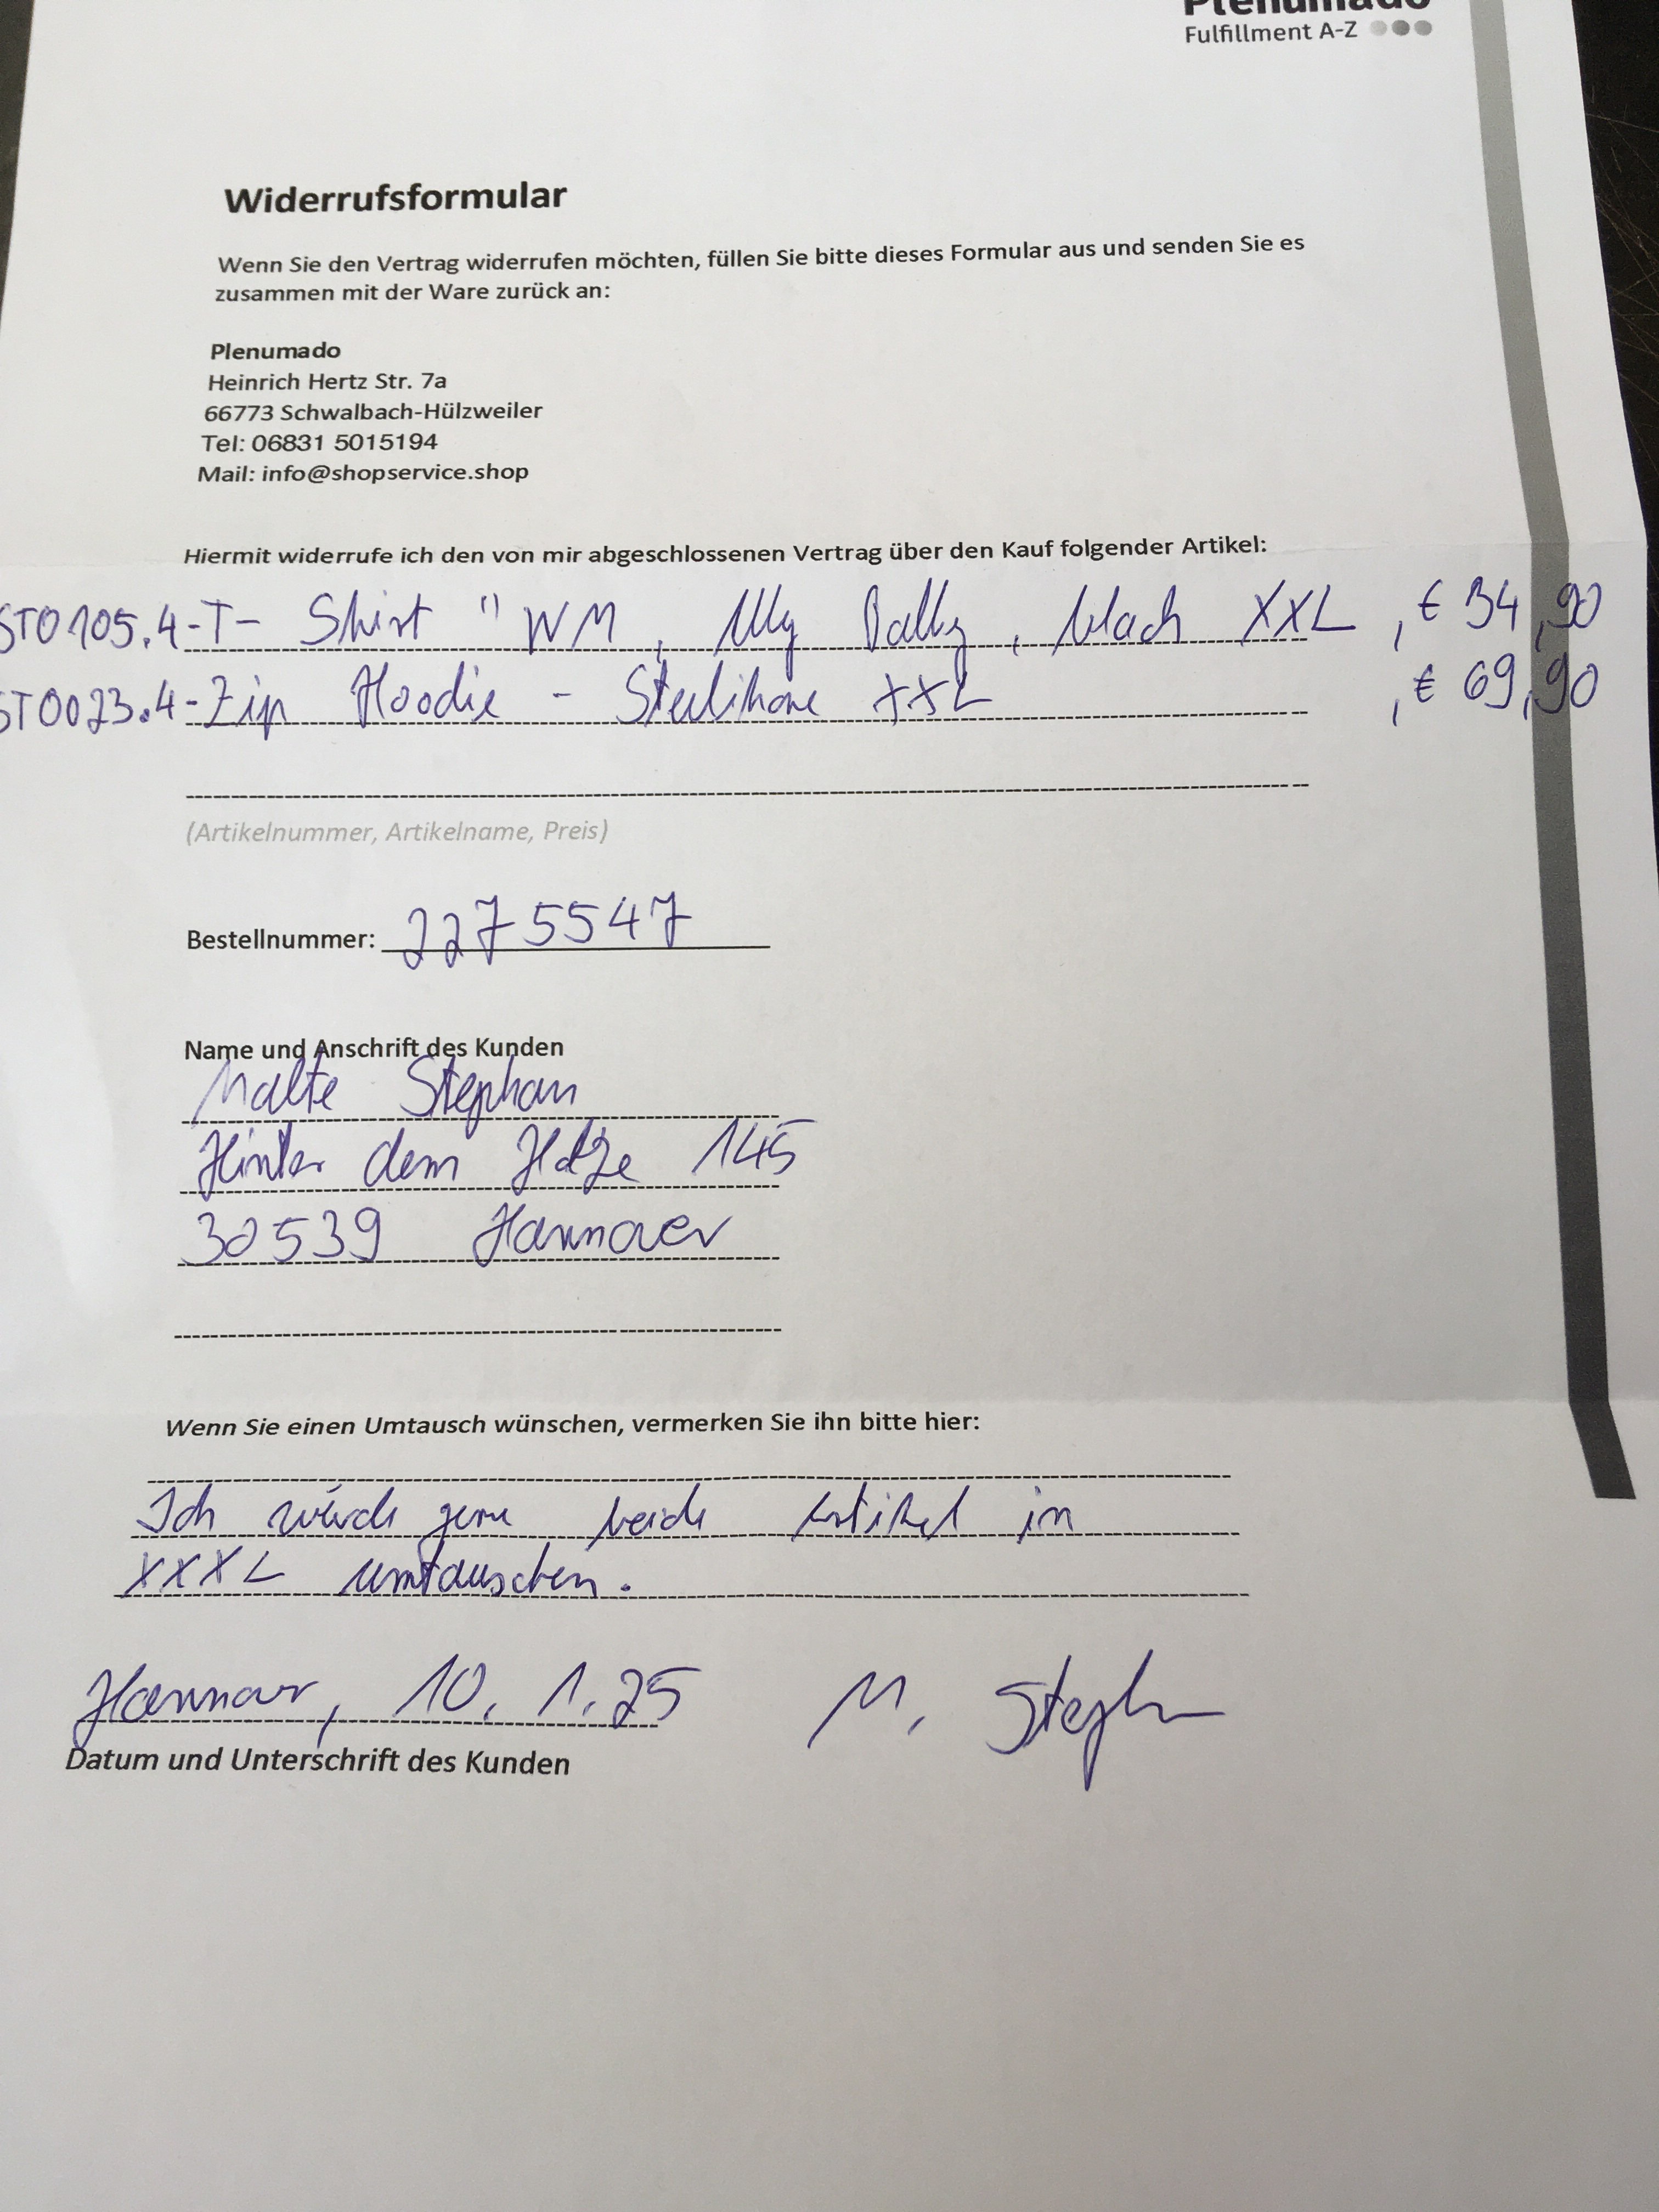 Plenumado
Fulfillment A-Z
Widerrufsformular
Wenn Sie den Vertrag widerrufen möchten, füllen Sie bitte dieses Formular aus und senden Sie es
zusammen mit der Ware zurück an:
Plenumado
Heinrich Hertz Str. 7a
66773 Schwalbach-Hülzweiler
Tel: 06831 5015194
Mail: info@shopservice.shop
Hiermit widerrufe ich den von mir abgeschlossenen Vertrag über den Kauf folgender Artikel:
STO105.4-T- Shirt " WM, XXL, € 34,90
STO023.4-Zip Hoodie - XXL, € 69,90
(Artikelnummer, Artikelname, Preis)
Bestellnummer: 2275547
Name und Anschrift des Kunden
Malte Stephan
Hinter dem Holze 145
30539 Hannover
Wenn Sie einen Umtausch wünschen, vermerken Sie ihn bitte hier:
Ich würde gerne beide Artikel in
XXXL umtauschen.
Hannover, 10.1.25 M. Stephan
Datum und Unterschrift des Kunden